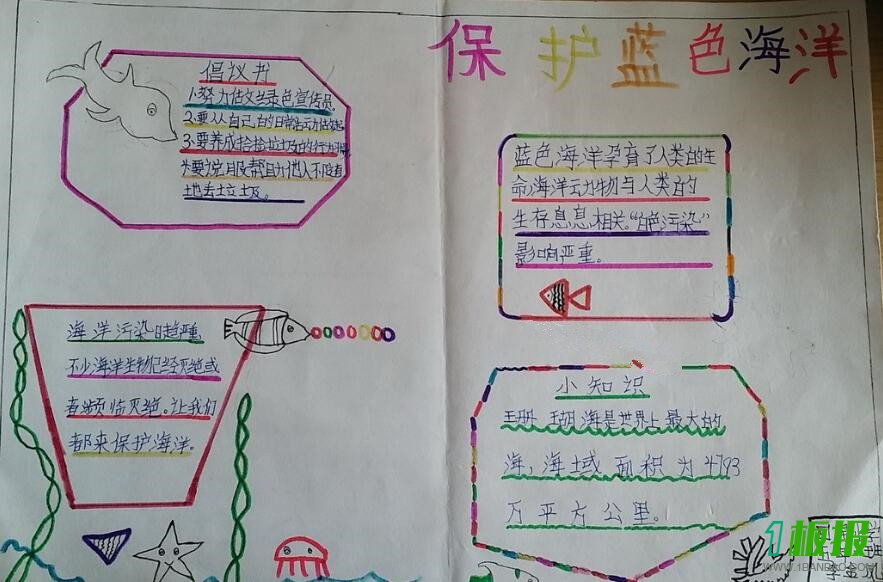 保护蓝色海洋
倡议书
1.努力做文兰录色宣传员。
2.要从自己的日常活动做起
3.要养成捡拾垃圾的行为习惯
4.要说服帮助他人不没有
地丢垃圾
蓝色海洋孕育了人类的生
命,海洋动物与人类的
生存息息相关。“白色污染”
影响严重。
海洋污染日趋严重,
不少海洋生物已经灭绝或
者濒临灭绝。让我们
都来保护海洋。
小知识
珊瑚海是世界上最大的
海,海域面积为4793
万平方公里。
1板报
WWW.1BANBAO.COM